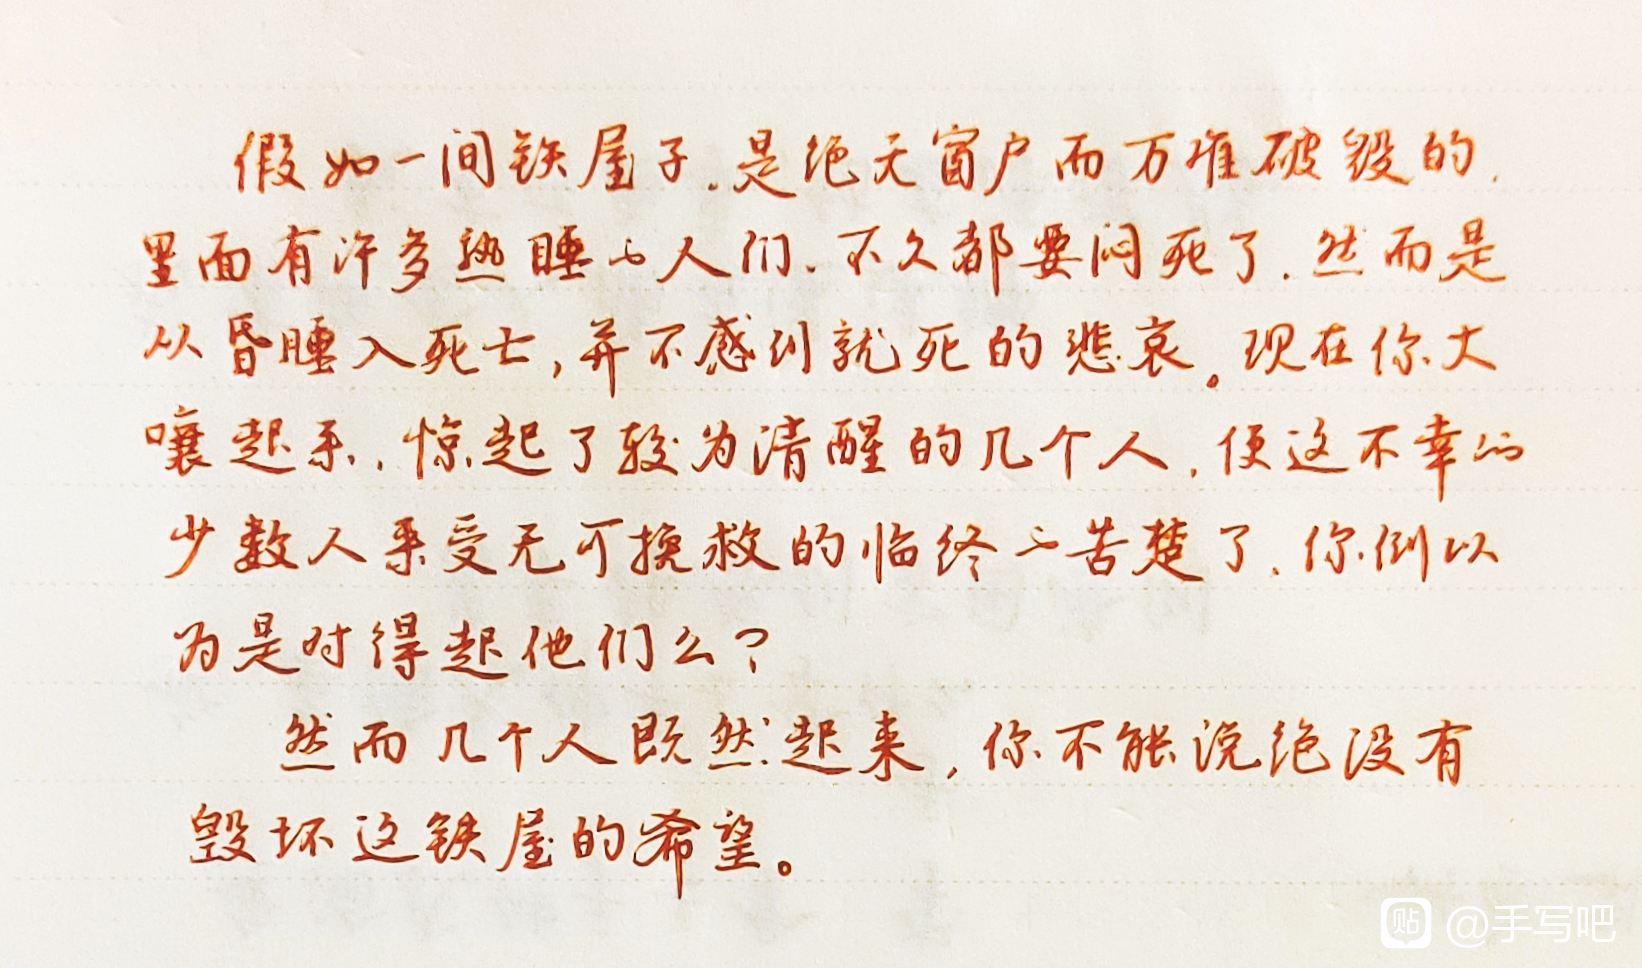 假如一间铁屋子,是绝无窗户而万难破毁的,
里面有许多熟睡的人们,不久都要闷死了,然而是
从昏睡入死亡,并不感到就死的悲哀。现在你大
嚷起来,惊起了较为清醒的几个人,使这不幸的
少数人来受无可挽救的临终的苦楚了,你倒以
为是对得起他们么?
然而几个人既然起来,你不能说绝没有
毁坏这铁屋的希望。
贴 @手写吧